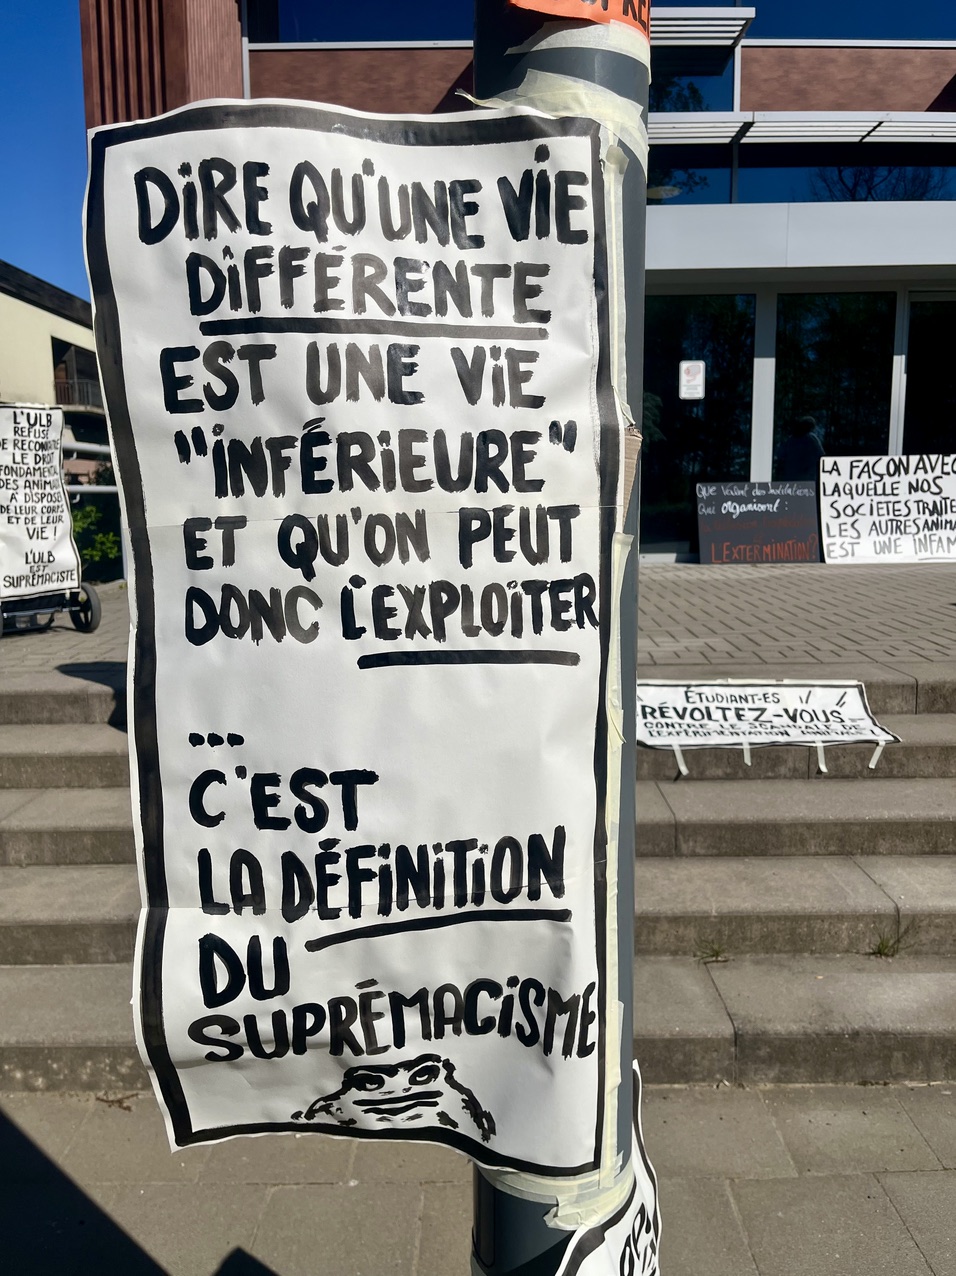 DIRE QU'UNE VIE
DIFFÉRENTE
EST UNE VIE
"INFÉRIEURE"
ET QU'ON PEUT
DONC L'EXPLOITER
...
C'EST
LA DÉFINITION
DU
SUPRÉMACISME
L'ULB
REFUSE
DE RECONNAITRE
LE DROIT
FONDAMENTAL
DES ANIMAUX
À DISPOSER
DE LEUR CORPS
ET DE LEUR
VIE !
L'ULB
EST
SUPRÉMACISTE
Que valent des Institutions
Qui organisent :
L'EXTERMINATION?
LA FAÇON AVEC
LAQUELLE NOS
SOCIÉTÉS TRAITE
LES AUTRES ANIMA
EST UNE INFAM
ÉTUDIANT·ES
RÉVOLTEZ-VOUS
CONTRE LE SCANDALE DE
L'EXPÉRIMENTATION ANIMALE